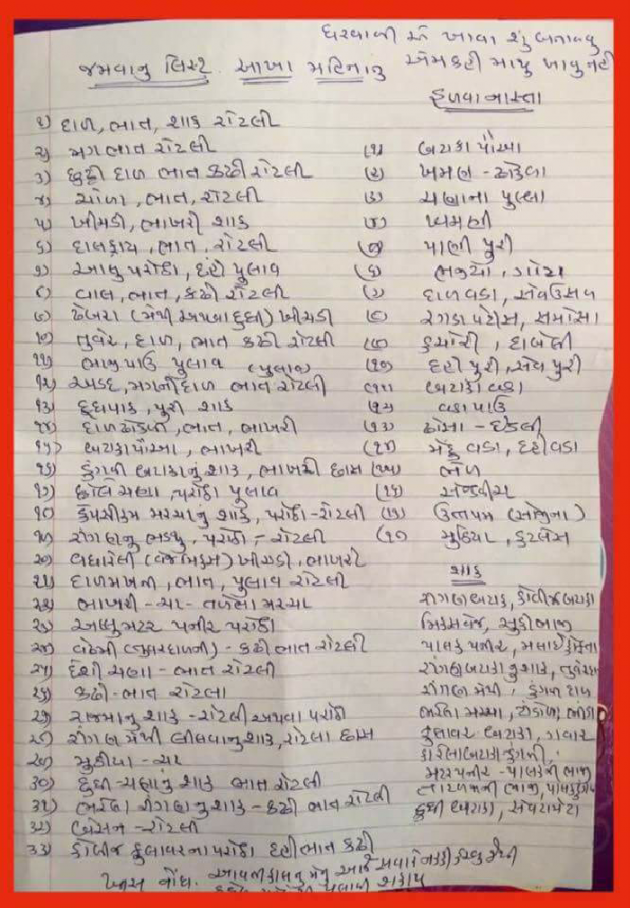 ઘરવાળી એ ખાવા શું બનાવવુ
એમ કહી માથુ ખાવુ નહી
જમવાનુ લિસ્ટ આખા મહિનાનુ
હળવા નાસ્તા
૧) દાળ, ભાત, શાક રોટલી
૨) મગ ભાત રોટલી
૩) છુટ્ટી દાળ ભાત કઢી રોટલી
૪) ચોળા, ભાત, રોટલી
૫) ખીચડી, ભાખરી શાક
૬) દાલફ્રાય, ભાત, રોટલી
૭) આલુ પરોઠા, દહી પુલાવ
૮) વાલ, ભાત, કઢી રોટલી
૯) ઢેબરા (મેથી અથવા દુધી) ખીચડી
૧૦) તુવેર, દાળ, ભાત કઢી રોટલી
૧૧) ભાજીપાઉ પુલાવ (પુલાવ)
૧૨) અડદ, મગની દાળ ભાત રોટલી
૧૩) દુધપાક, પુરી શાક
૧૪) દાળઢોકળી, ભાત, ભાખરી
૧૫) બટાકાપૌંઆ, ભાખરી
૧૬) ડુંગળી બટાકાનું શાક, ભાખરી છાસ
૧૭) છોલે ચણા, પરોઠા પુલાવ
૧૮) કેપસીકમ મરચાનુ શાક, પરોઠા - રોટલી
૧૯) રીંગણનુ ભડથુ, પરોઠા, - રોટલી
૨૦) વઘારેલી (વેજ મિક્સ) ખીચડી, ભાખરી
૨૧) દાળમખની, ભાત, પુલાવ રોટલી
૨૨) ભાખરી - ચા - તળેલા મરચા
૨૩) આલુ મટર પનીર પરોઠા
૨૪) વેઢમી (તુવેરદાળની) - કઢી ભાત રોટલી
૨૫) દેશી ચણા - ભાત રોટલી
૨૬) કઢી - ભાત રોટલા
૨૭) રાજમાનુ શાક - રોટલી અથવા પરોઠા
૨૮) રીંગણ મેથી લીલવાનુ શાક, રોટલા છાસ
૨૯) મુઠીયા - ચા
૩૦) દુધી - ચણાનું શાક ભાત રોટલી
૩૧) ભરેલા રીંગણાનુ શાક - કઢી ભાત રોટલી
૩૨) બેસન - રોટલી
૩૩) કોબીજ ફુલાવરના પરોઠા દહી ભાત કઢી
(૧) બટાકા પૌંઆ
(૨) ખમણ - ઢોકળા
(૩) ચણાના પુલ્લા
(૪) ખમણી
(૫) પાણી પુરી
(૬) ભજીયા, ગોટા
(૭) દાળવડા, સેવઉસળ
(૮) રગડા પેટીસ, સમોસા
(૯) કચોરી, દાબેલી
(૧૦) દહી પુરી, સેવ પુરી
(૧૧) બટાકા વડા
(૧૨) વડાપાઉ
(૧૩) ઢોસા - ઈડલી
(૧૪) મેંદુ વડા, દહીવડા
(૧૫) ભેળ
(૧૬) સેન્ડવીચ
(૧૭) ઉત્તપમ (સોજીના)
(૧૮) મુઠિયા, કટલેસ
શાક
રીંગણ બટાકા, કોબીજ બટાકા
મિક્સવેજ, સુકીભાજી
પાલક પનીર, મલાઈ કોફતા
રીંગણ બટાકાનુ શાક,
રીંગણ મેથી,
ભરેલા મરચા, ટીંડોળા, ભીંડા
ફુલાવર બટાકા, ગવાર
કારેલા બટાકા ડુંગળી,
મટર પનીર - પાલકની ભાજી
તાંદળજાની ભાજી,
દુધી બટાકા, સેવટામેટા
ખાસ નોંધ. આવતીકાલનુ મેનુ આજે સવારે નક્કી